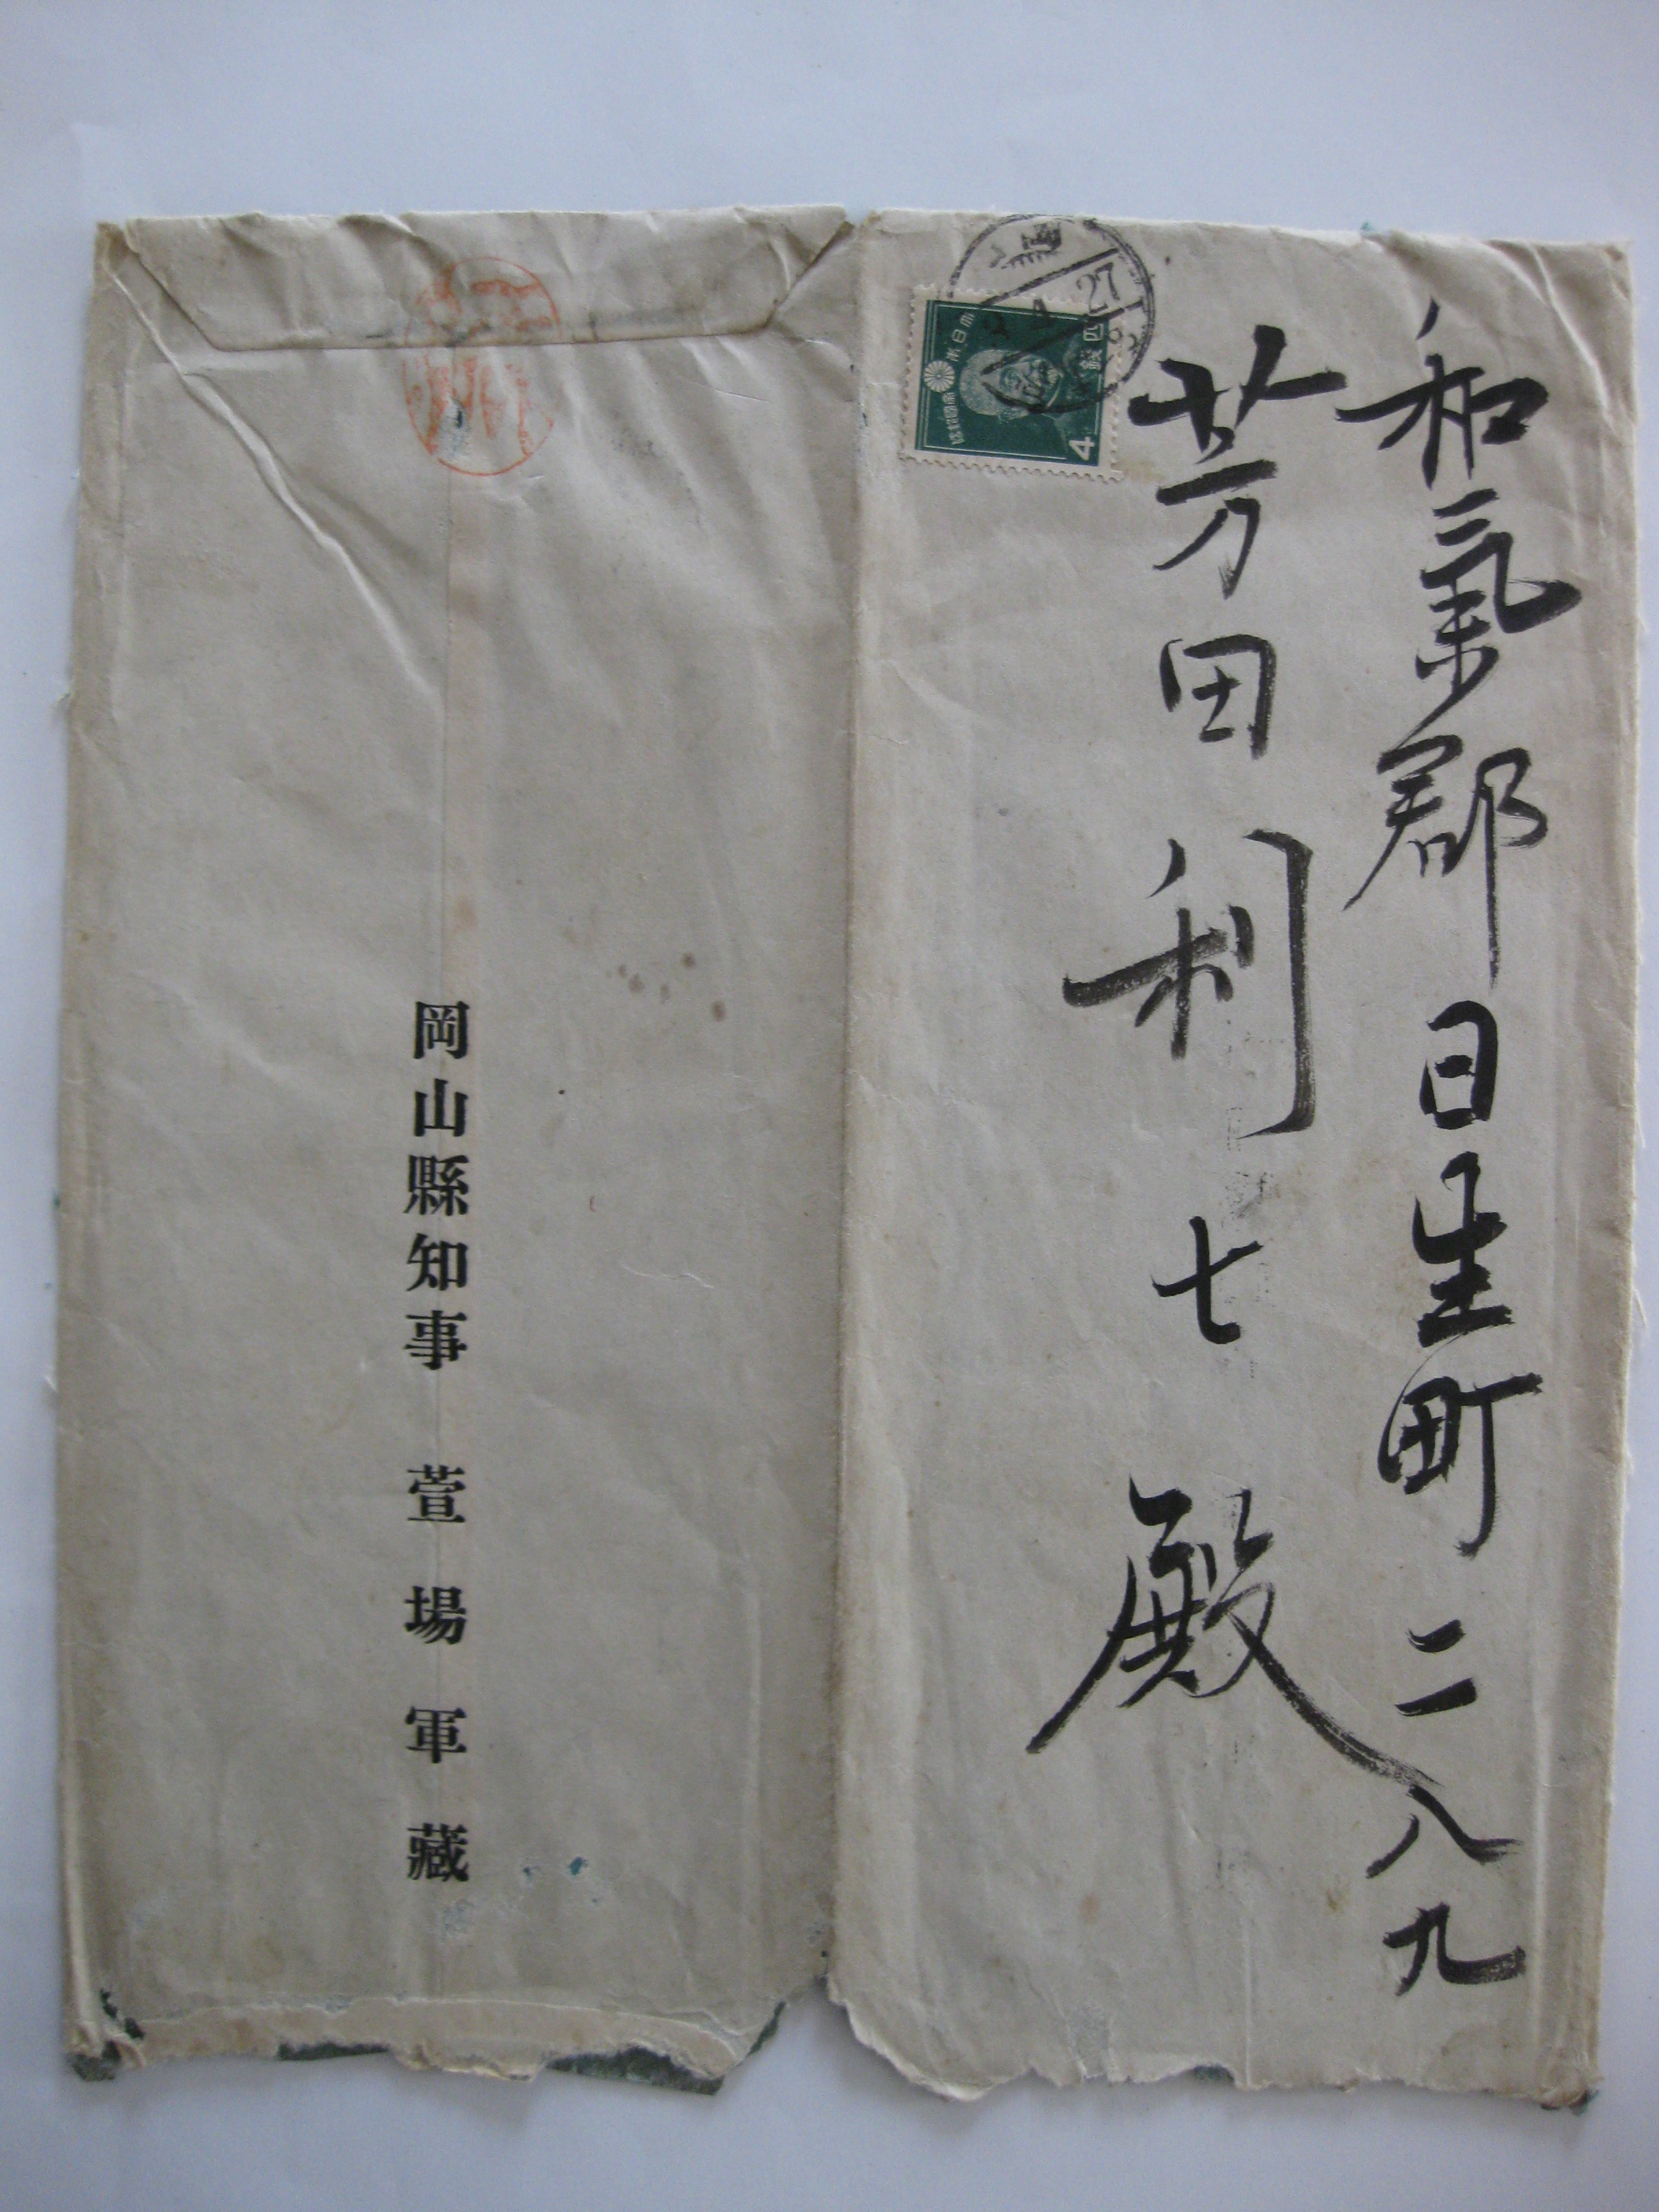 和氣郡日生町二八九
芳田利七殿
大日本帝國郵便
四錢
4
27
岡山縣知事 萱場軍藏